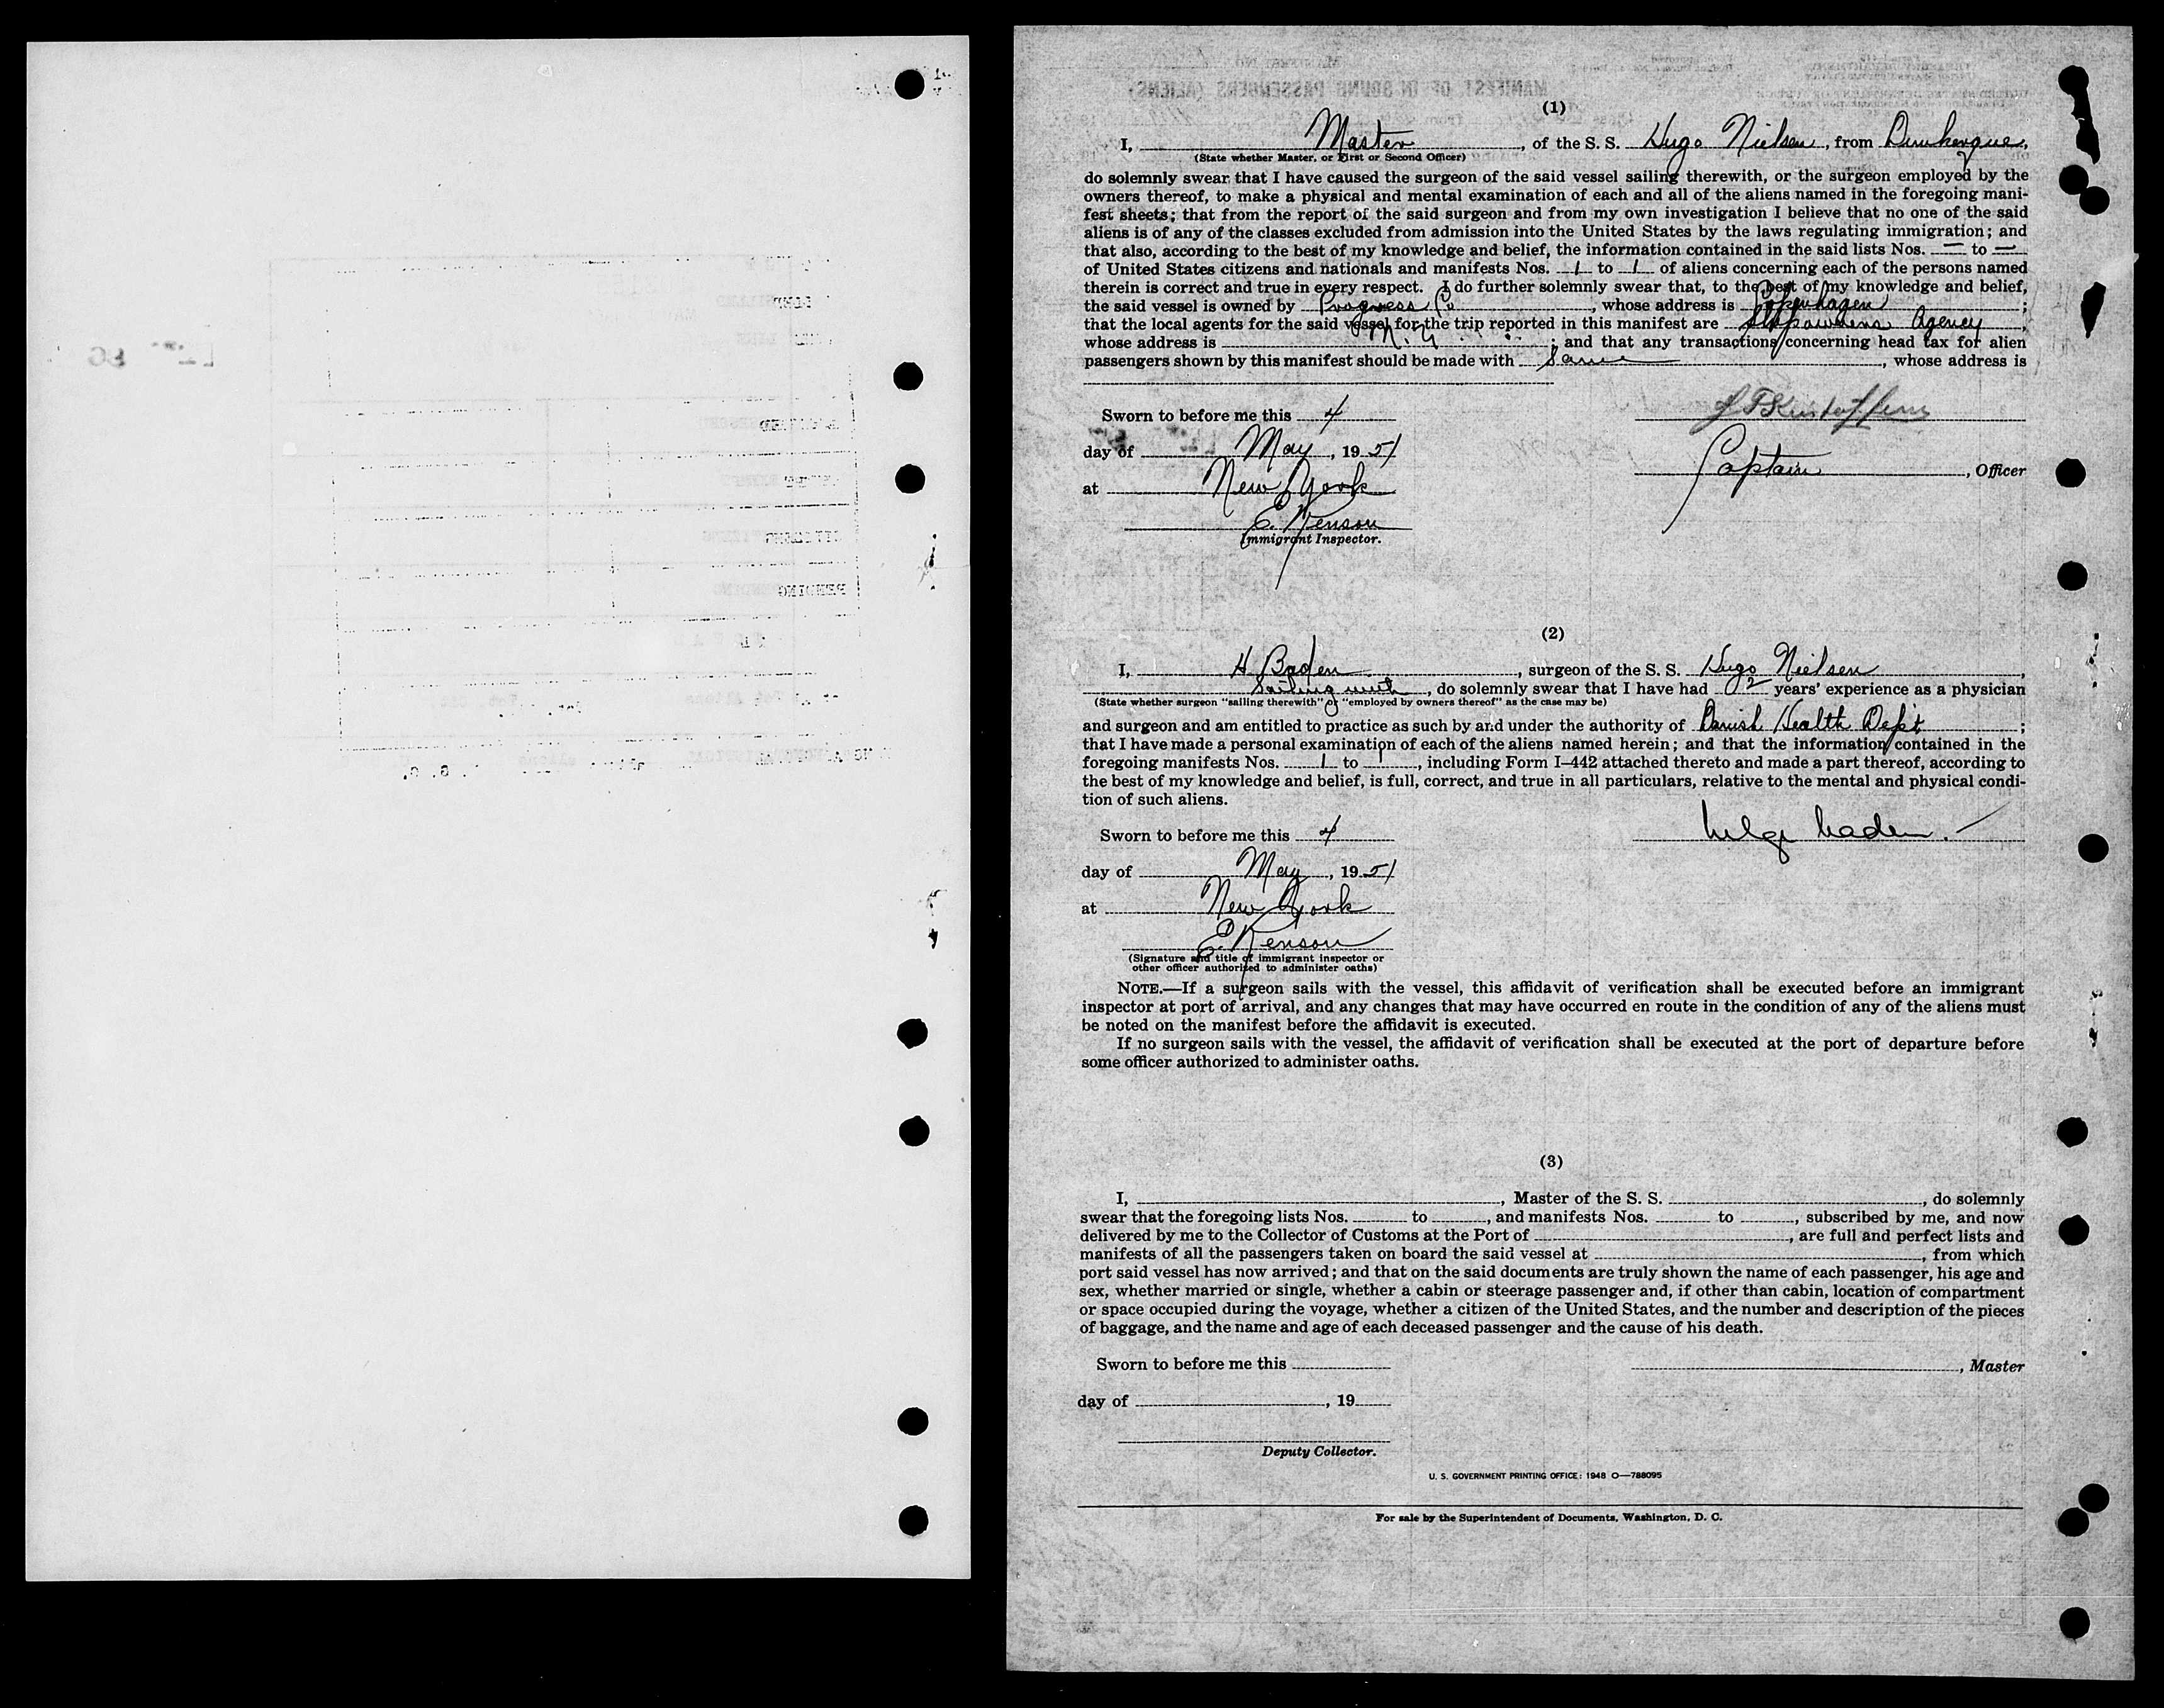 (1)
I, Master, of the S. S. Hugo Nielsen, from Dunkerque,
(State whether Master, or First or Second Officer)
do solemnly swear that I have caused the surgeon of the said vessel sailing therewith, or the surgeon employed by the
owners thereof, to make a physical and mental examination of each and all of the aliens named in the foregoing mani-
fest sheets; that from the report of the said surgeon and from my own investigation I believe that no one of the said
aliens is of any of the classes excluded from admission into the United States by the laws regulating immigration; and
that also, according to the best of my knowledge and belief, the information contained in the said lists Nos. — to —
of United States citizens and nationals and manifests Nos. 1 to 1 of aliens concerning each of the persons named
therein is correct and true in every respect. I do further solemnly swear that, to the best of my knowledge and belief,
the said vessel is owned by Progress Co, whose address is Copenhagen;
that the local agents for the said vessel for the trip reported in this manifest are Agency,
whose address is N. Y.; and that any transactions concerning head tax for alien
passengers shown by this manifest should be made with Same, whose address is
Sworn to before me this 4
day of May, 1951
Captain, Officer
at New York
E. Kenson
Immigrant Inspector.
(2)
I, H Baden, surgeon of the S. S. Hugo Nielsen,
Sailing with, do solemnly swear that I have had 2 years' experience as a physician
(State whether surgeon "sailing therewith" or "employed by owners thereof" as the case may be)
and surgeon and am entitled to practice as such by and under the authority of Danish Health Dep't;
that I have made a personal examination of each of the aliens named herein; and that the information contained in the
foregoing manifests Nos. 1 to 1, including Form I-442 attached thereto and made a part thereof, according to
the best of my knowledge and belief, is full, correct, and true in all particulars, relative to the mental and physical condi-
tion of such aliens.
Sworn to before me this 4
helge baden.
day of May, 1951
at New York
E. Kenson
(Signature and title of immigrant inspector or
other officer authorized to administer oaths)
NOTE.—If a surgeon sails with the vessel, this affidavit of verification shall be executed before an immigrant
inspector at port of arrival, and any changes that may have occurred en route in the condition of any of the aliens must
be noted on the manifest before the affidavit is executed.
If no surgeon sails with the vessel, the affidavit of verification shall be executed at the port of departure before
some officer authorized to administer oaths.
(3)
I, , Master of the S. S. , do solemnly
swear that the foregoing lists Nos. to , and manifests Nos. to , subscribed by me, and now
delivered by me to the Collector of Customs at the Port of , are full and perfect lists and
manifests of all the passengers taken on board the said vessel at , from which
port said vessel has now arrived; and that on the said documents are truly shown the name of each passenger, his age and
sex, whether married or single, whether a cabin or steerage passenger and, if other than cabin, location of compartment
or space occupied during the voyage, whether a citizen of the United States, and the number and description of the pieces
of baggage, and the name and age of each deceased passenger and the cause of his death.
Sworn to before me this
, Master
day of , 19
Deputy Collector.
U. S. GOVERNMENT PRINTING OFFICE: 1948 O—788095
For sale by the Superintendent of Documents, Washington, D. C.